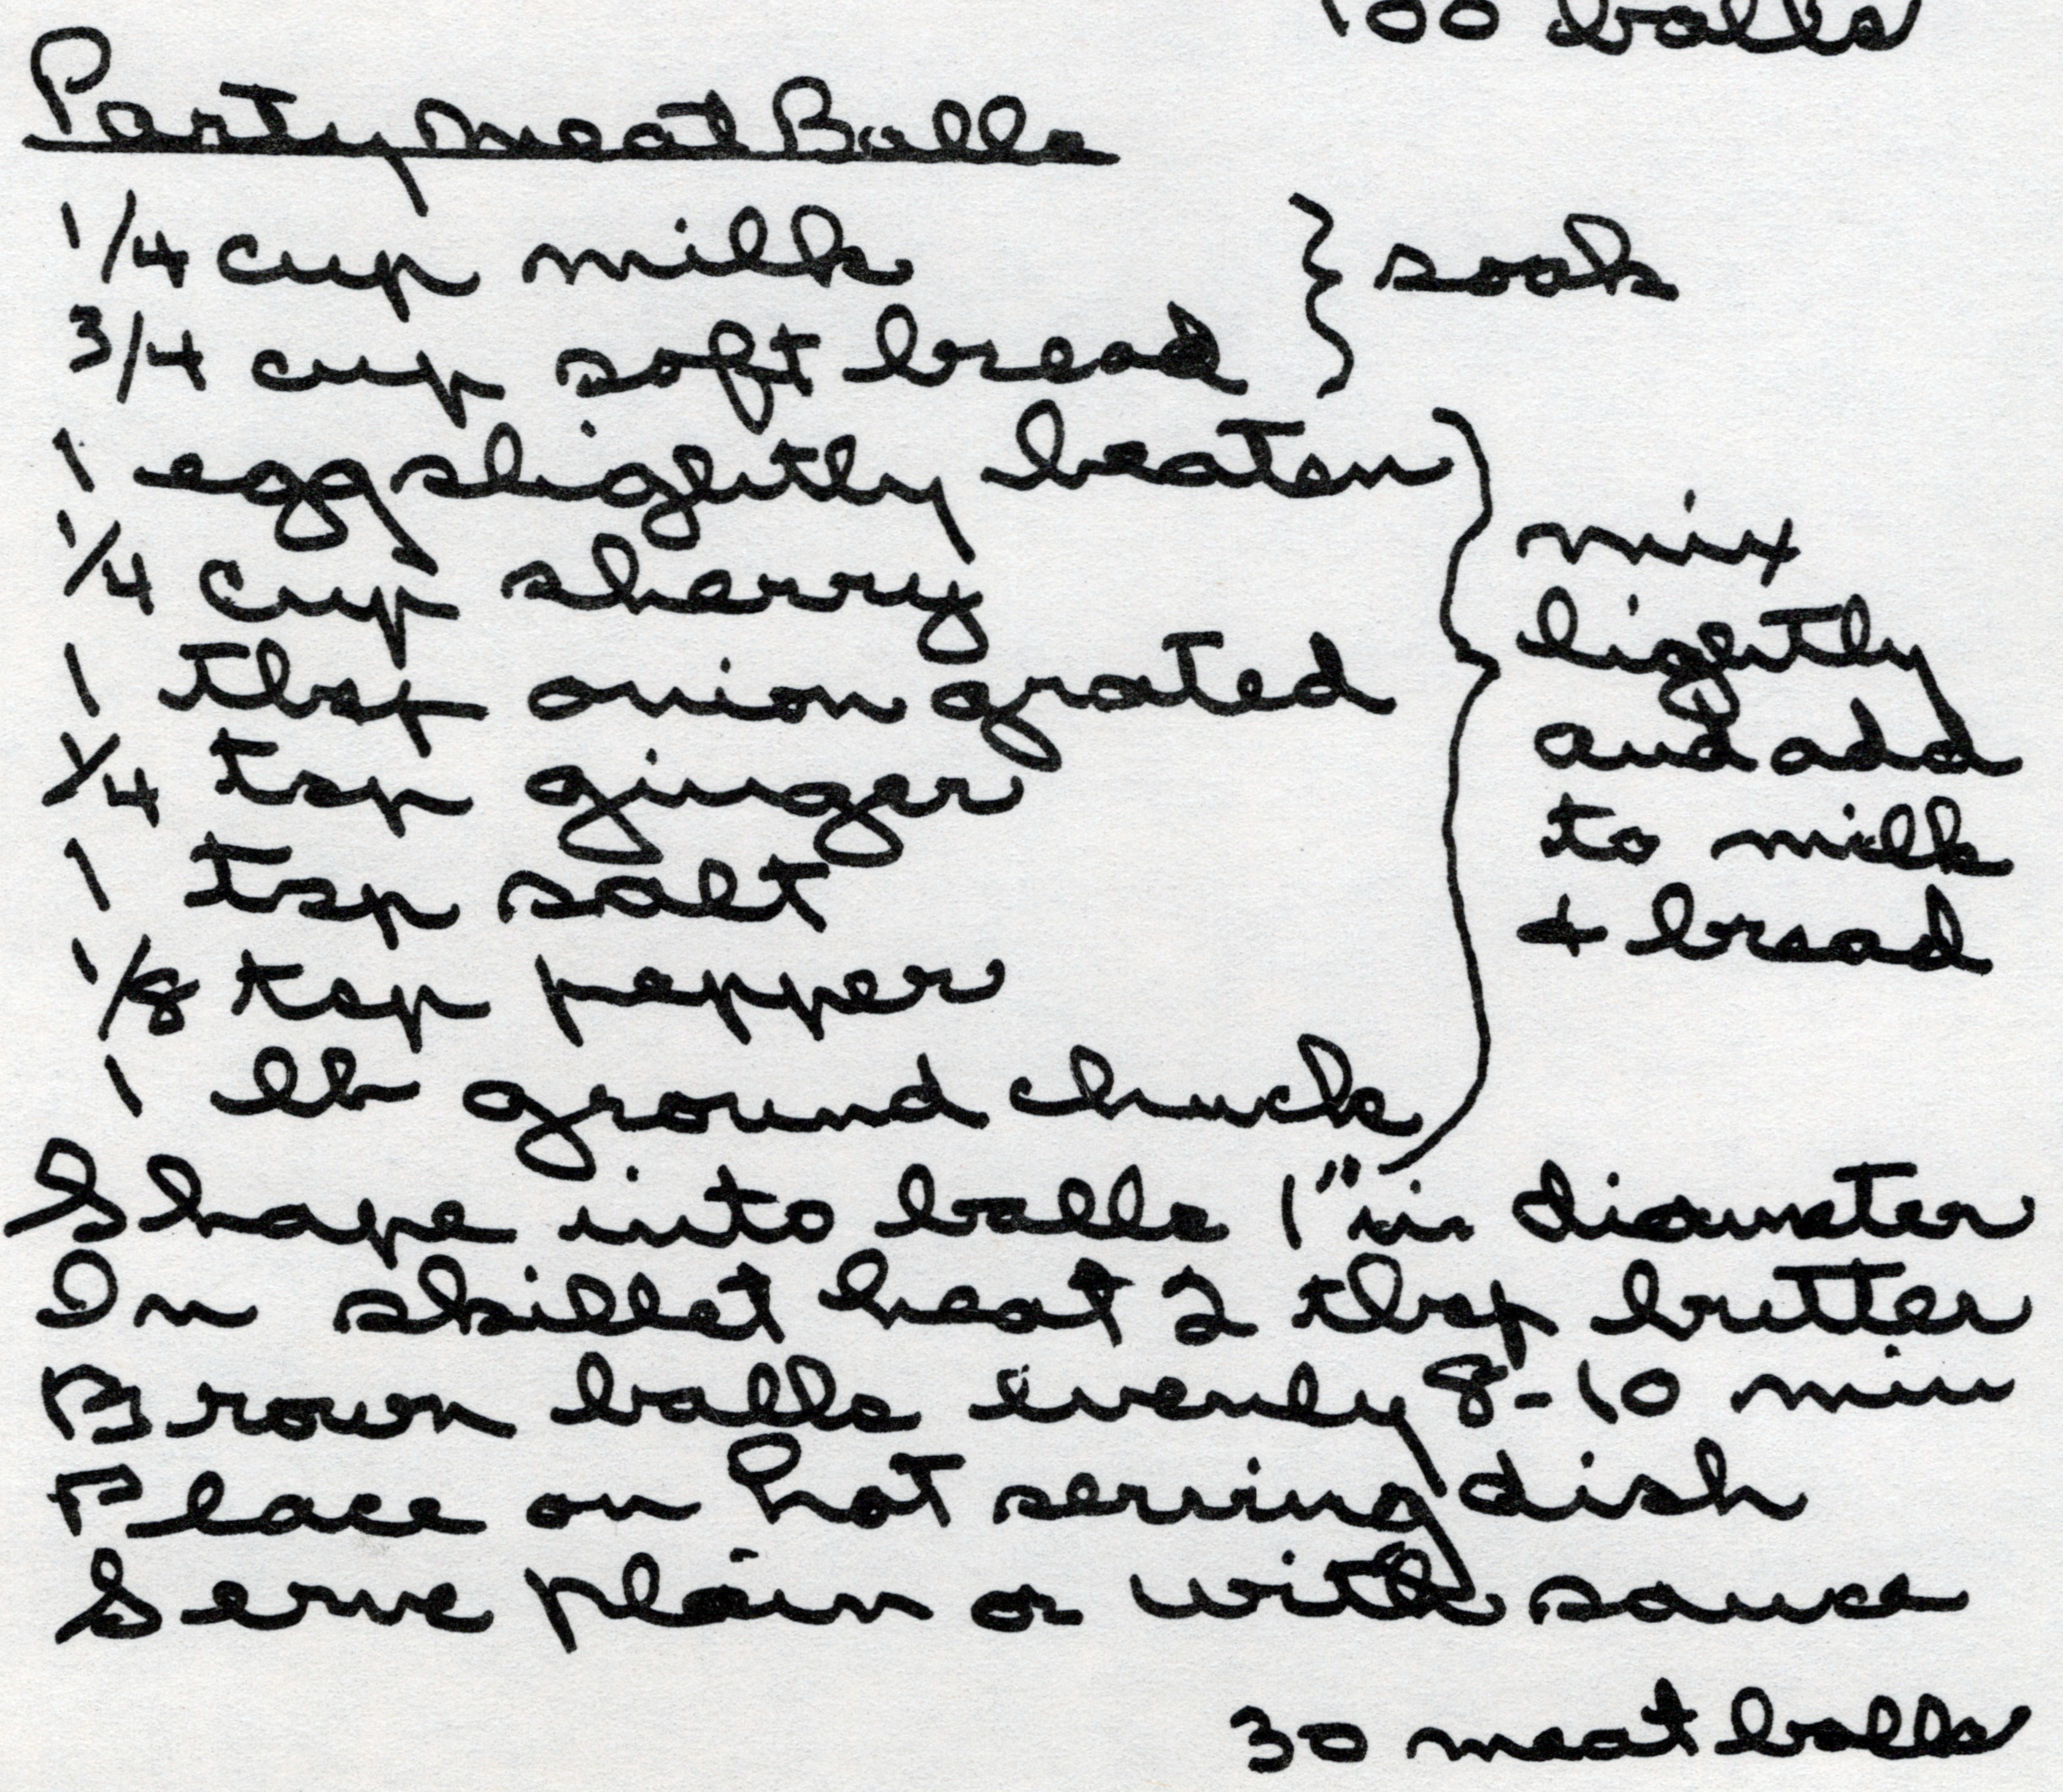 100 balls
Party Meat Balls
1/4 cup milk } soak
3/4 cup soft bread
1 egg slightly beaten
1/4 cup sherry
1 tbsp onion grated
1/4 tsp ginger
1 tsp salt
1/8 tsp pepper
1 lb ground chuck
mix
lightly
and add
to milk
+ bread
Shape into balls 1" in diameter
In skillet heat 2 tbsp butter
Brown balls evenly 8-10 min
Place on hot serving dish
Serve plain or with sauce
30 meat balls